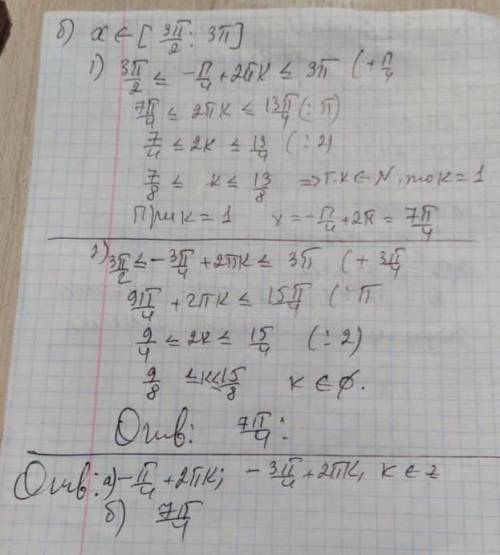 б) x ∈ [3π/2; 3π]
1) 3π/2 ≤ -π/4 + 2πk ≤ 3π (+π/4
7π/4 ≤ 2πk ≤ 13π/4 (:π)
7/4 ≤ 2k ≤ 13/4 (:2)
7/8 ≤ k ≤ 13/8 ⇒ т.к ∈ N, то к = 1
При к = 1 x = -π/4 + 2π = 7π/4
2) 3π/2 ≤ -3π/4 + 2πk ≤ 3π (+ 3π/4
9π/4 + 2πk ≤ 15π/4 (:π
9/4 ≤ 2k ≤ 15/4 (:2)
9/8 ≤ k ≤ 15/8 k ∈ ∅.
Отв: 7π/4:
Отв: а) -π/4 + 2πk; -3π/4 + 2πk, k ∈ z
б) 7π/4